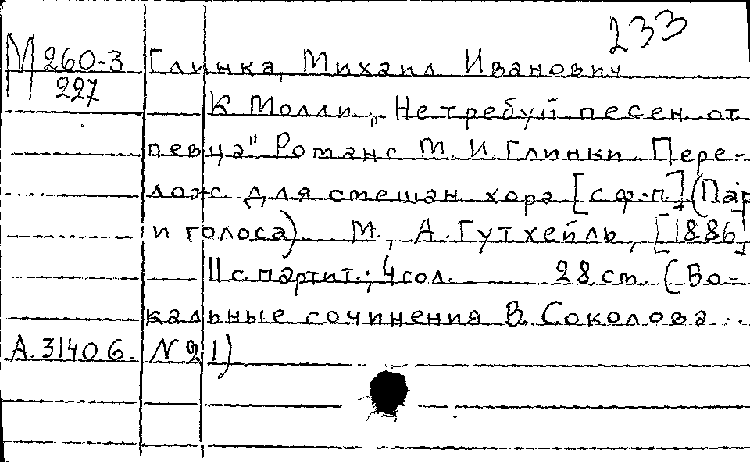 233
М 260-3 Глинка, Михаил Иванович
227
К Молли „Не требуй песен от
певца" Романс М. И. Глинки. Пере-
лож для смешан хора [с ф-п.] (Пар
и голоса). М., А. Гутхейль, [1886]
11 с. партит.; 4 гол. 28 см. (Во-
кальные сочинения В. Соколова...
А. 31406. N 21)